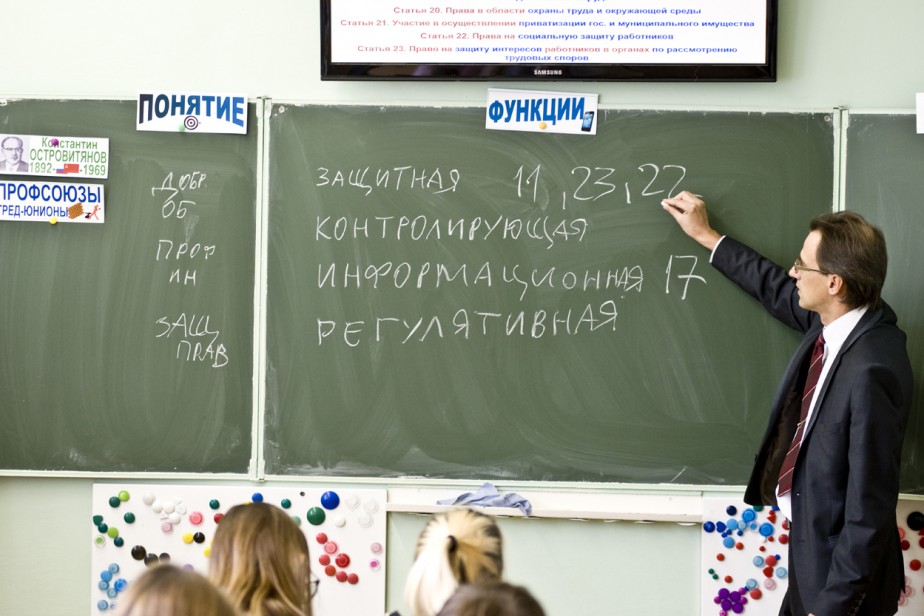 Статья 20. Права в области охраны труда и окружающей среды
Статья 21. Участие в осуществлении приватизации гос. и муниципального имущества
Статья 22. Права на социальную защиту работников
Статья 23. Право на защиту интересов работников в органах по рассмотрению
трудовых споров
SAMSUNG
ПОНЯТИЕ
ФУНКЦИИ
Константин
ОСТРОВИТЯНОВ
1892- -1969
ПРОФСОЮЗЫ
ТРЕД-ЮНИОНЫ
ДОБР
ОБ
ПРОФ
ИН
ЗАЩ
ПРАВ
ЗАЩИТНАЯ 11, 23, 22
КОНТРОЛИРУЮЩАЯ
ИНФОРМАЦИОННАЯ 17
РЕГУЛЯТИВНАЯ